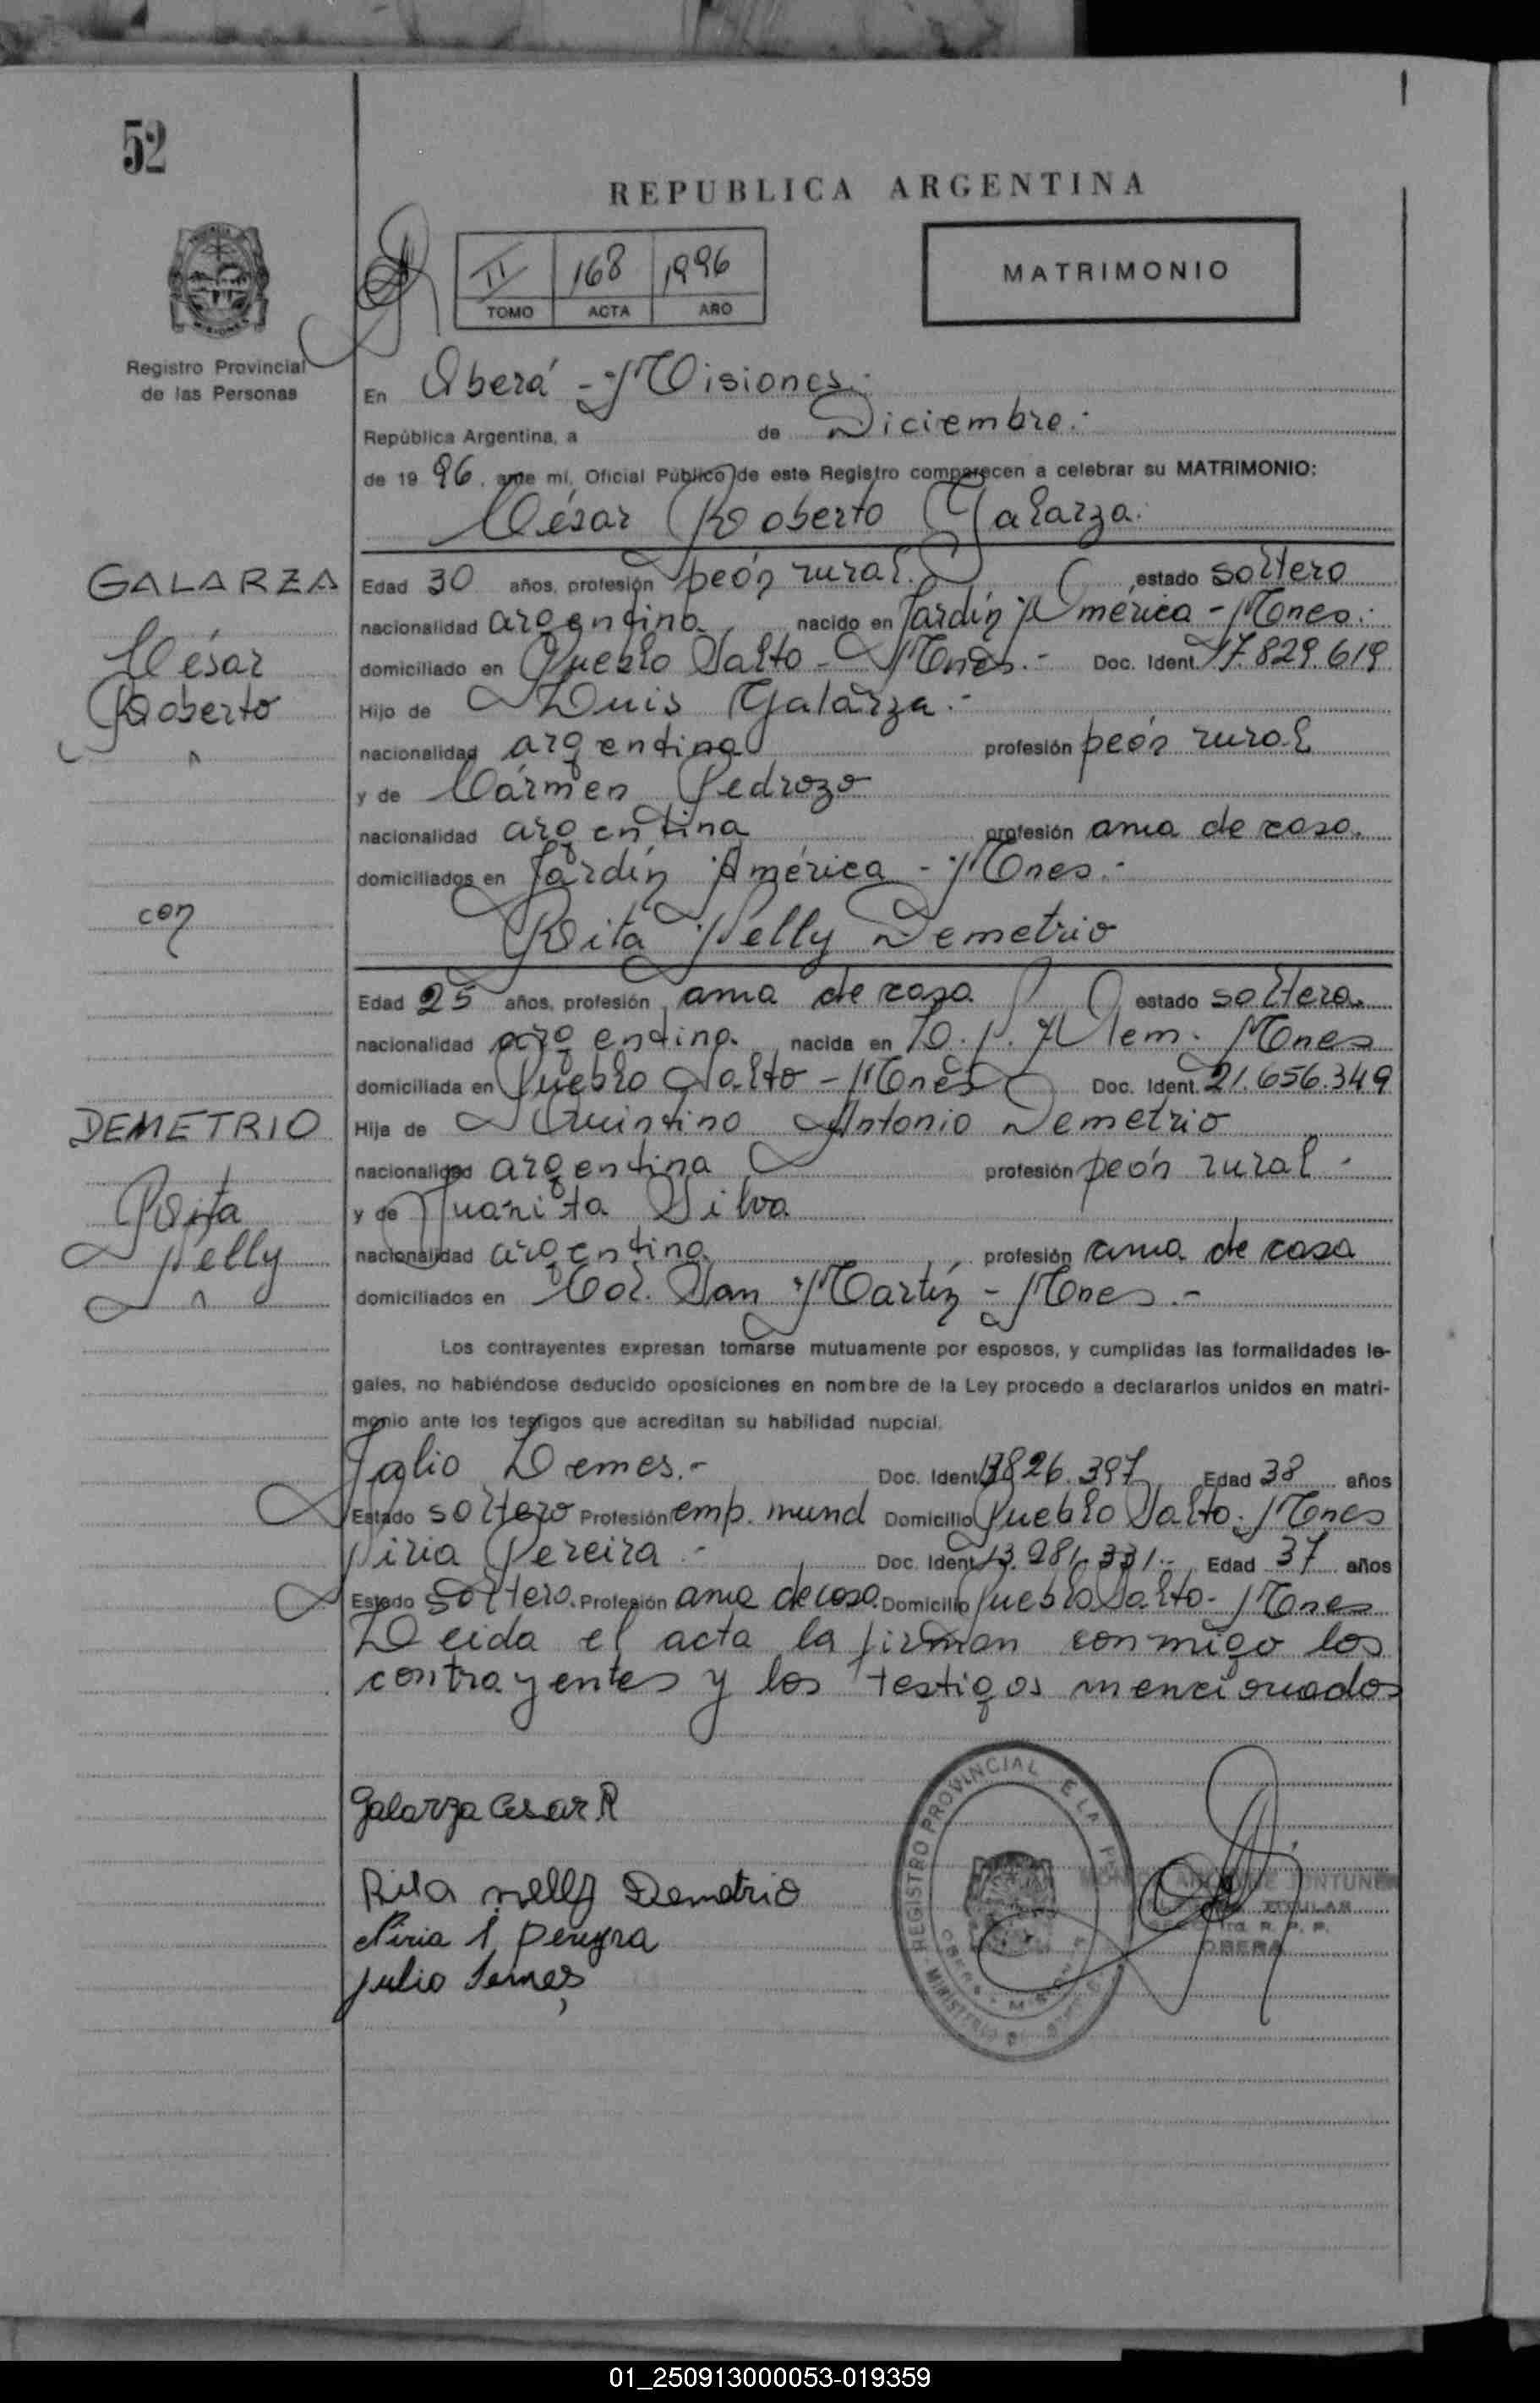 52
REPUBLICA ARGENTINA
II 168 1996
TOMO ACTA AÑO
MATRIMONIO
Registro Provincial
de las Personas
En Oberá - Misiones.-
República Argentina, a de Diciembre.-
de 1996, ante mí, Oficial Público de este Registro comparecen a celebrar su MATRIMONIO:
César Roberto Galarza.
GALARZA
César
Roberto
Edad 30 años, profesión peón rural. estado soltero
nacionalidad argentina nacido en Jardín América - Mnes.
domiciliado en Pueblo Salto - Mnes.- Doc. Ident. 17.829.619
Hijo de Luis Galarza.-
nacionalidad argentina profesión peón rural
y de Cármen Pedrozo
nacionalidad argentina profesión ama de casa.
domiciliados en Jardín América - Mnes.-
con
Rita Nelly Demetrio
Edad 25 años, profesión ama de casa estado soltera.
nacionalidad argentina. nacida en L. N. Alem. Mnes
domiciliada en Pueblo Salto - Mnes Doc. Ident. 21.656.349
DEMETRIO
Rita
Nelly
Hija de Quintino Antonio Demetrio
nacionalidad argentina profesión peón rural -
y de Juanita Silva
nacionalidad argentina. profesión ama de casa
domiciliados en Col. San Martín - Mnes.-
Los contrayentes expresan tomarse mutuamente por esposos, y cumplidas las formalidades le-
gales, no habiéndose deducido oposiciones en nombre de la Ley procedo a declararlos unidos en matri-
monio ante los testigos que acreditan su habilidad nupcial.
Julio Lemes.- Doc. Ident. Edad 38 años
Estado soltero Profesión emp. mund Domicilio Pueblo Salto. Mnes
Niria Pereira.- Doc. Ident. 13.281.331.- Edad 37 años
Estado soltera. Profesión ama de casa. Domicilio Pueblo Salto - Mnes
Leida el acta la firman conmigo los
contrayentes y los testigos mencionados
Galarza Cesar R
Rita nelly Demetrio
Niria Pereyra
Julio Lemes
REGISTRO PROVINCIAL DE LA
MINISTERIO
TITULAR
R. P. P.
OBERA
01_250913000053-019359